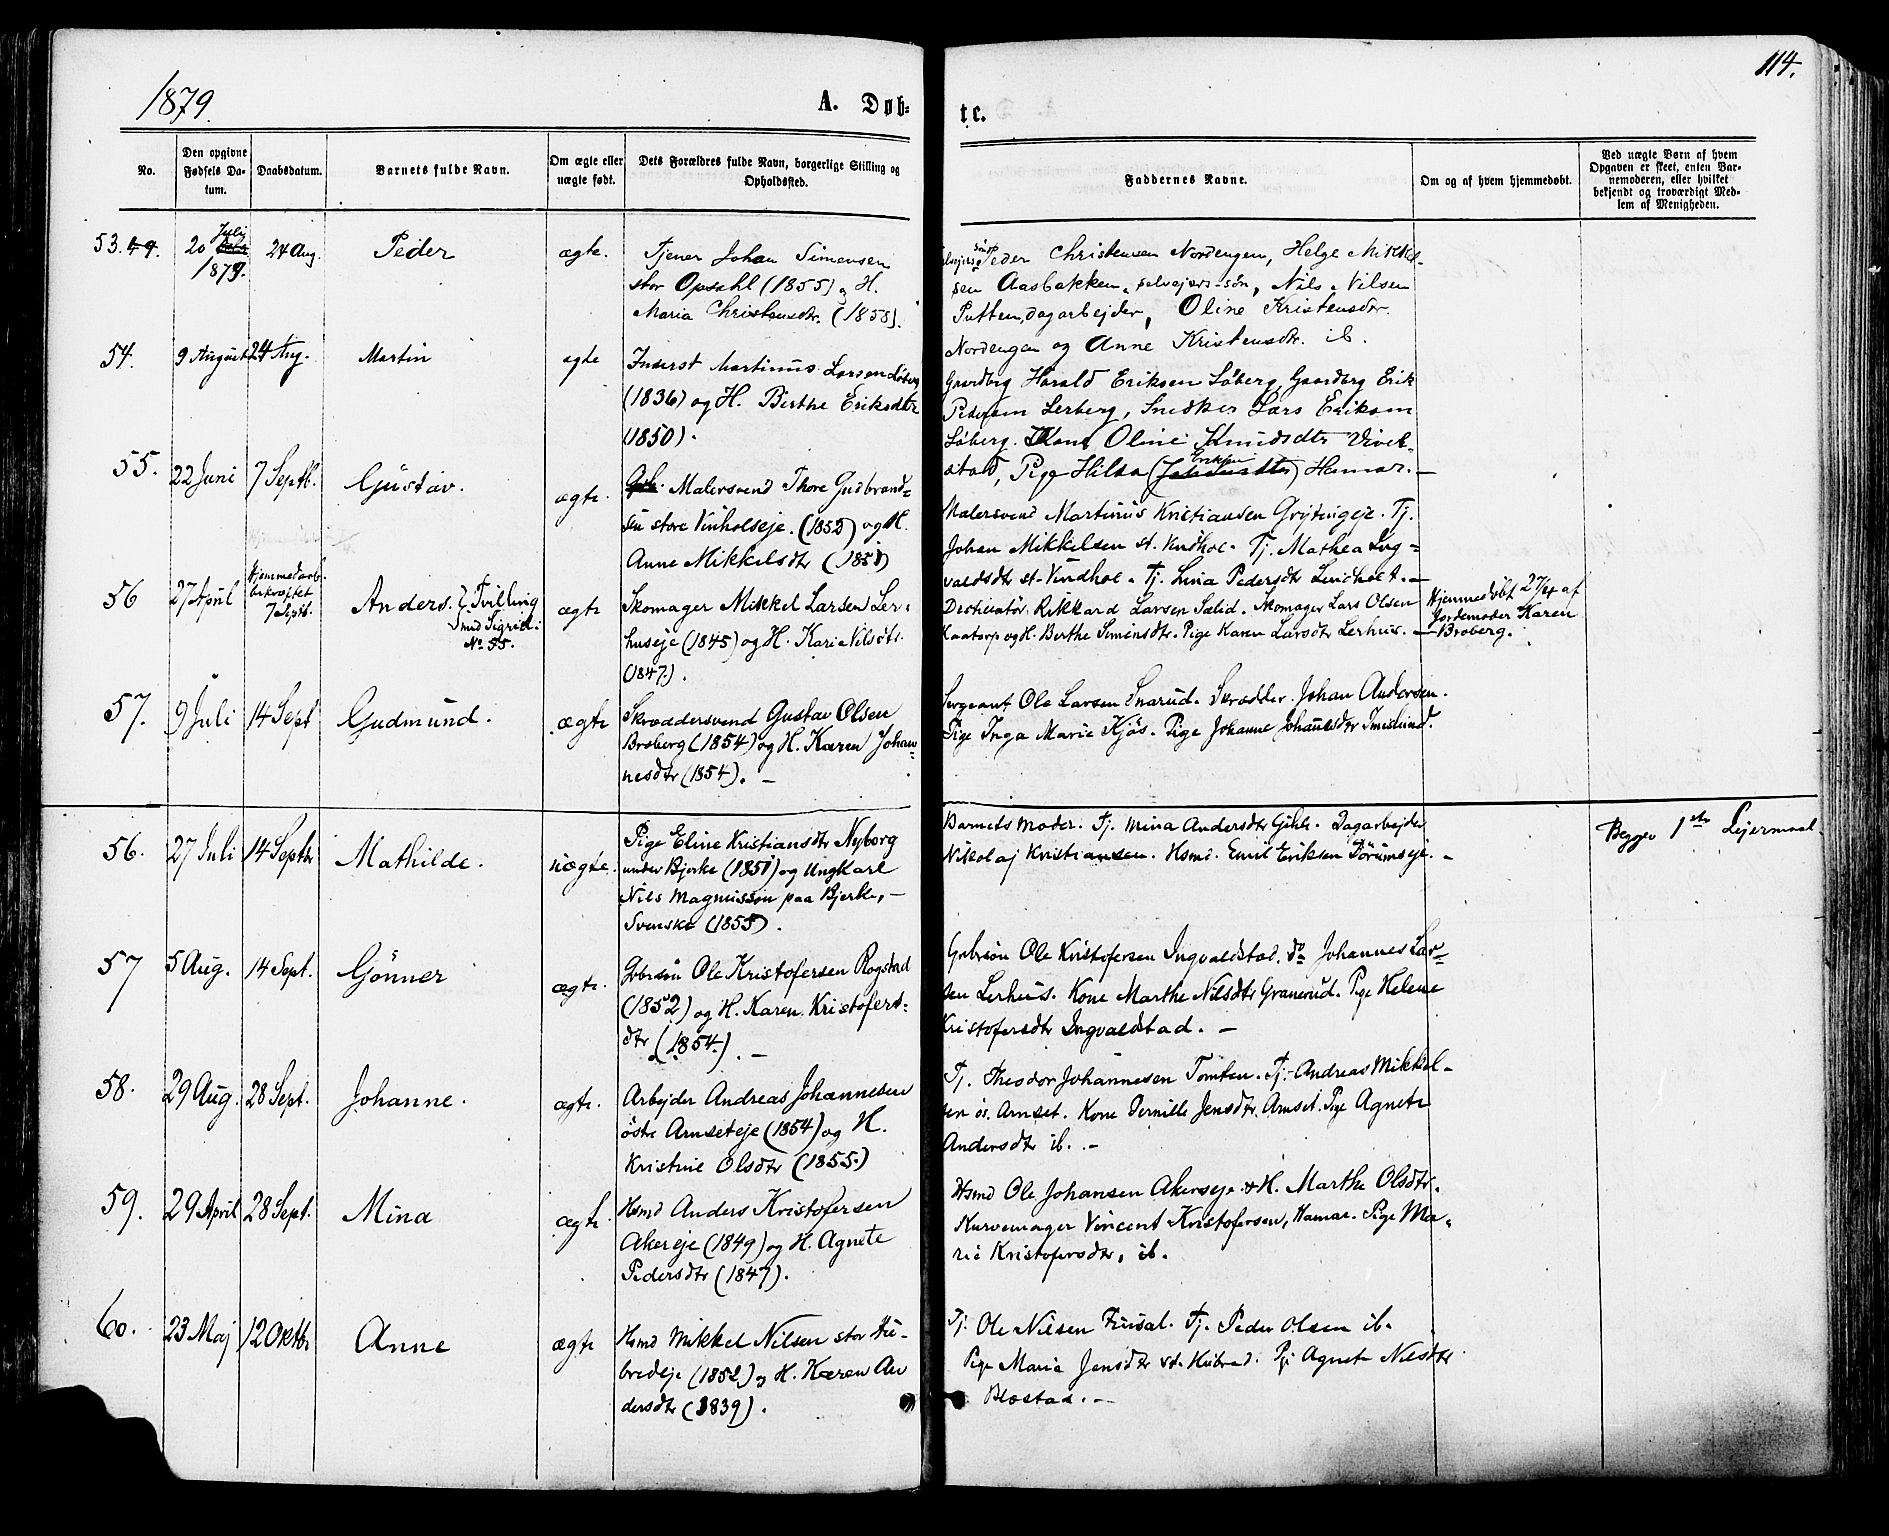 1879.
A. Døb-
te.
114.
No.
Den opgivne
Fødsels Da-
tum.
Daabsdatum.
Barnets fulde Navn.
Om ægte eller
uægte født.
Dets Forældres fulde Navn, borgerlige Stilling og
Opholdssted.
Faddernes Navne.
Om og af hvem hjemmedøbt.
Ved uægte Børn af hvem
Opgaven er skeet, enten Bar-
nemoderen, eller hvilket
bekjendt og troværdigt Med-
lem af Menigheden.
53. 49.
20 Juli
1879.
24 Aug.
Peder
ægte.
Tjener Johan Simensen
stor Opsahl (1855) og H.
Maria Christensdtr. (1858).
Peder Christensen Nordengen, Helge Mikkel-
sen Aasbakken, selvejers-søn, Nils Nilsen
Putten, dagarbejder, Oline Kristensdtr.
Nordengen og Anne Kristensdtr. ib.
54.
9 August
24 Aug.
Martin
ægte
Inderst Martinus Larsen Løberg
(1836) og H. Birthe Eriksdtr
(1850).
Gaardbrg Harald Eriksen Løberg, Gaardbrg Erik
Pedersen Lerberg, Snedker Lars Eriksen
Løberg. Kone Oline Knudsdtr Vivel-
stad, Pige Hilda Eriksen Hamar. —
55.
22 Juni
7 Septb.
Gustav.
ægte.
Malersvend Thore Gudbrand-
sen store Vinholseje. (1852) og H.
Anne Mikkelsdtr (1851)
Malersvend Martinus Kristiansen Grytingeje. Tj.
Johan Mikkelsen st. Vindhol. Tj. Mathea Ing-
valdsdtr st. Vindhol. Tj. Lina Pedersdtr Lindholt. —
56
27 April
Hjemmedaab.
bekræftet
7 Septb.
Anders. Tvilling
med Sigrid.
No 55.
ægte
Skomager Mikkel Larsen Ler-
huseje (1845) og H. Kari Nilsdtr.
(1847).
Destilatør Rikkard Larsen Sælid. Skomager Lars Olsen
Kaatorp og H. Berthe Simensdtr. Pige Karen Larsdtr Lerhus. —
Hjemmedøbt 27/4 af
Jordemoder Karen
Broberg.
57.
9 Juli
14 Sept
Gudmund.
ægte
Skræddersvend Gustav Olsen
Broberg (1854) og H. Karen Johan-
nesdtr (1854). —
Sergeant Ole Larsen Snarud. Skrædder Johan Andersen.
Pige Inga Marie Kjøs. Pige Johanne Johannesdtr Imislund.
56.
27 Juli
14 Septbr
Mathilde.
uægte.
Pige Eline Kristiansdtr Nyborg
under Bjerke (1851) og Ungkarl
Nils Magnusson paa Bjerke, —
Svenske (1855).
Barnets Moder. Tj. Mina Andersdtr Gihle. Dagarbejder
Nikolaj Kristiansen. Hsmd. Emil Eriksen Børumseje. —
Begges 1ste Lejermaal.
57
5 Aug.
14 Sept.
Gønner
ægte.
Gbbrsøn Ole Kristofersen Rogstad
(1852) og H. Karen Kristofers-
dtr (1854). —
Gbbrsøn Ole Kristofersen Ingvaldstad. do Johannes Lar-
sen Lerhus. Kone Marthe Nilsdtr Granerud. Pige Helene
Kristofersdtr Ingvaldstad. —
58.
29 Aug.
28 Sept.
Johanne.
ægte.
Arbejder Andreas Johannesen
østre Arnseteje (1854) og H.
Kristine Olsdtr (1855.)
Tj. Theodor Johannesen Tomten. Tj. Andreas Mikkel-
sen ös. Arnset. Kone Pernille Jensdtr Arnset. Pige Agnete
Andersdtr ib. —
59.
29 April
28 Sept.
Mina
ægte.
Hsmd Anders Kristofersen
Akereje (1849) og H. Agnete
Pedersdtr (1847).
Hsmd Ole Johansen Akerseje & H. Marthe Olsdtr.
Kurvemager Vincent Kristofersen, Hamar. Pige Ma-
rie Kristofersdtr, ib.
60.
23 Maj
12 Oktbr
Anne
ægte
Hsmd Mikkel Nilsen stor Hu-
bredeje (1852) og H. Karen An
dersdtr (1839).
Tj. Ole Nilsen Furusal. Tj. Peder Olsen ib.
Pige Maria Jensdtr st. Hubred. Pi Agnete Nilsdtr
Blæstad. —